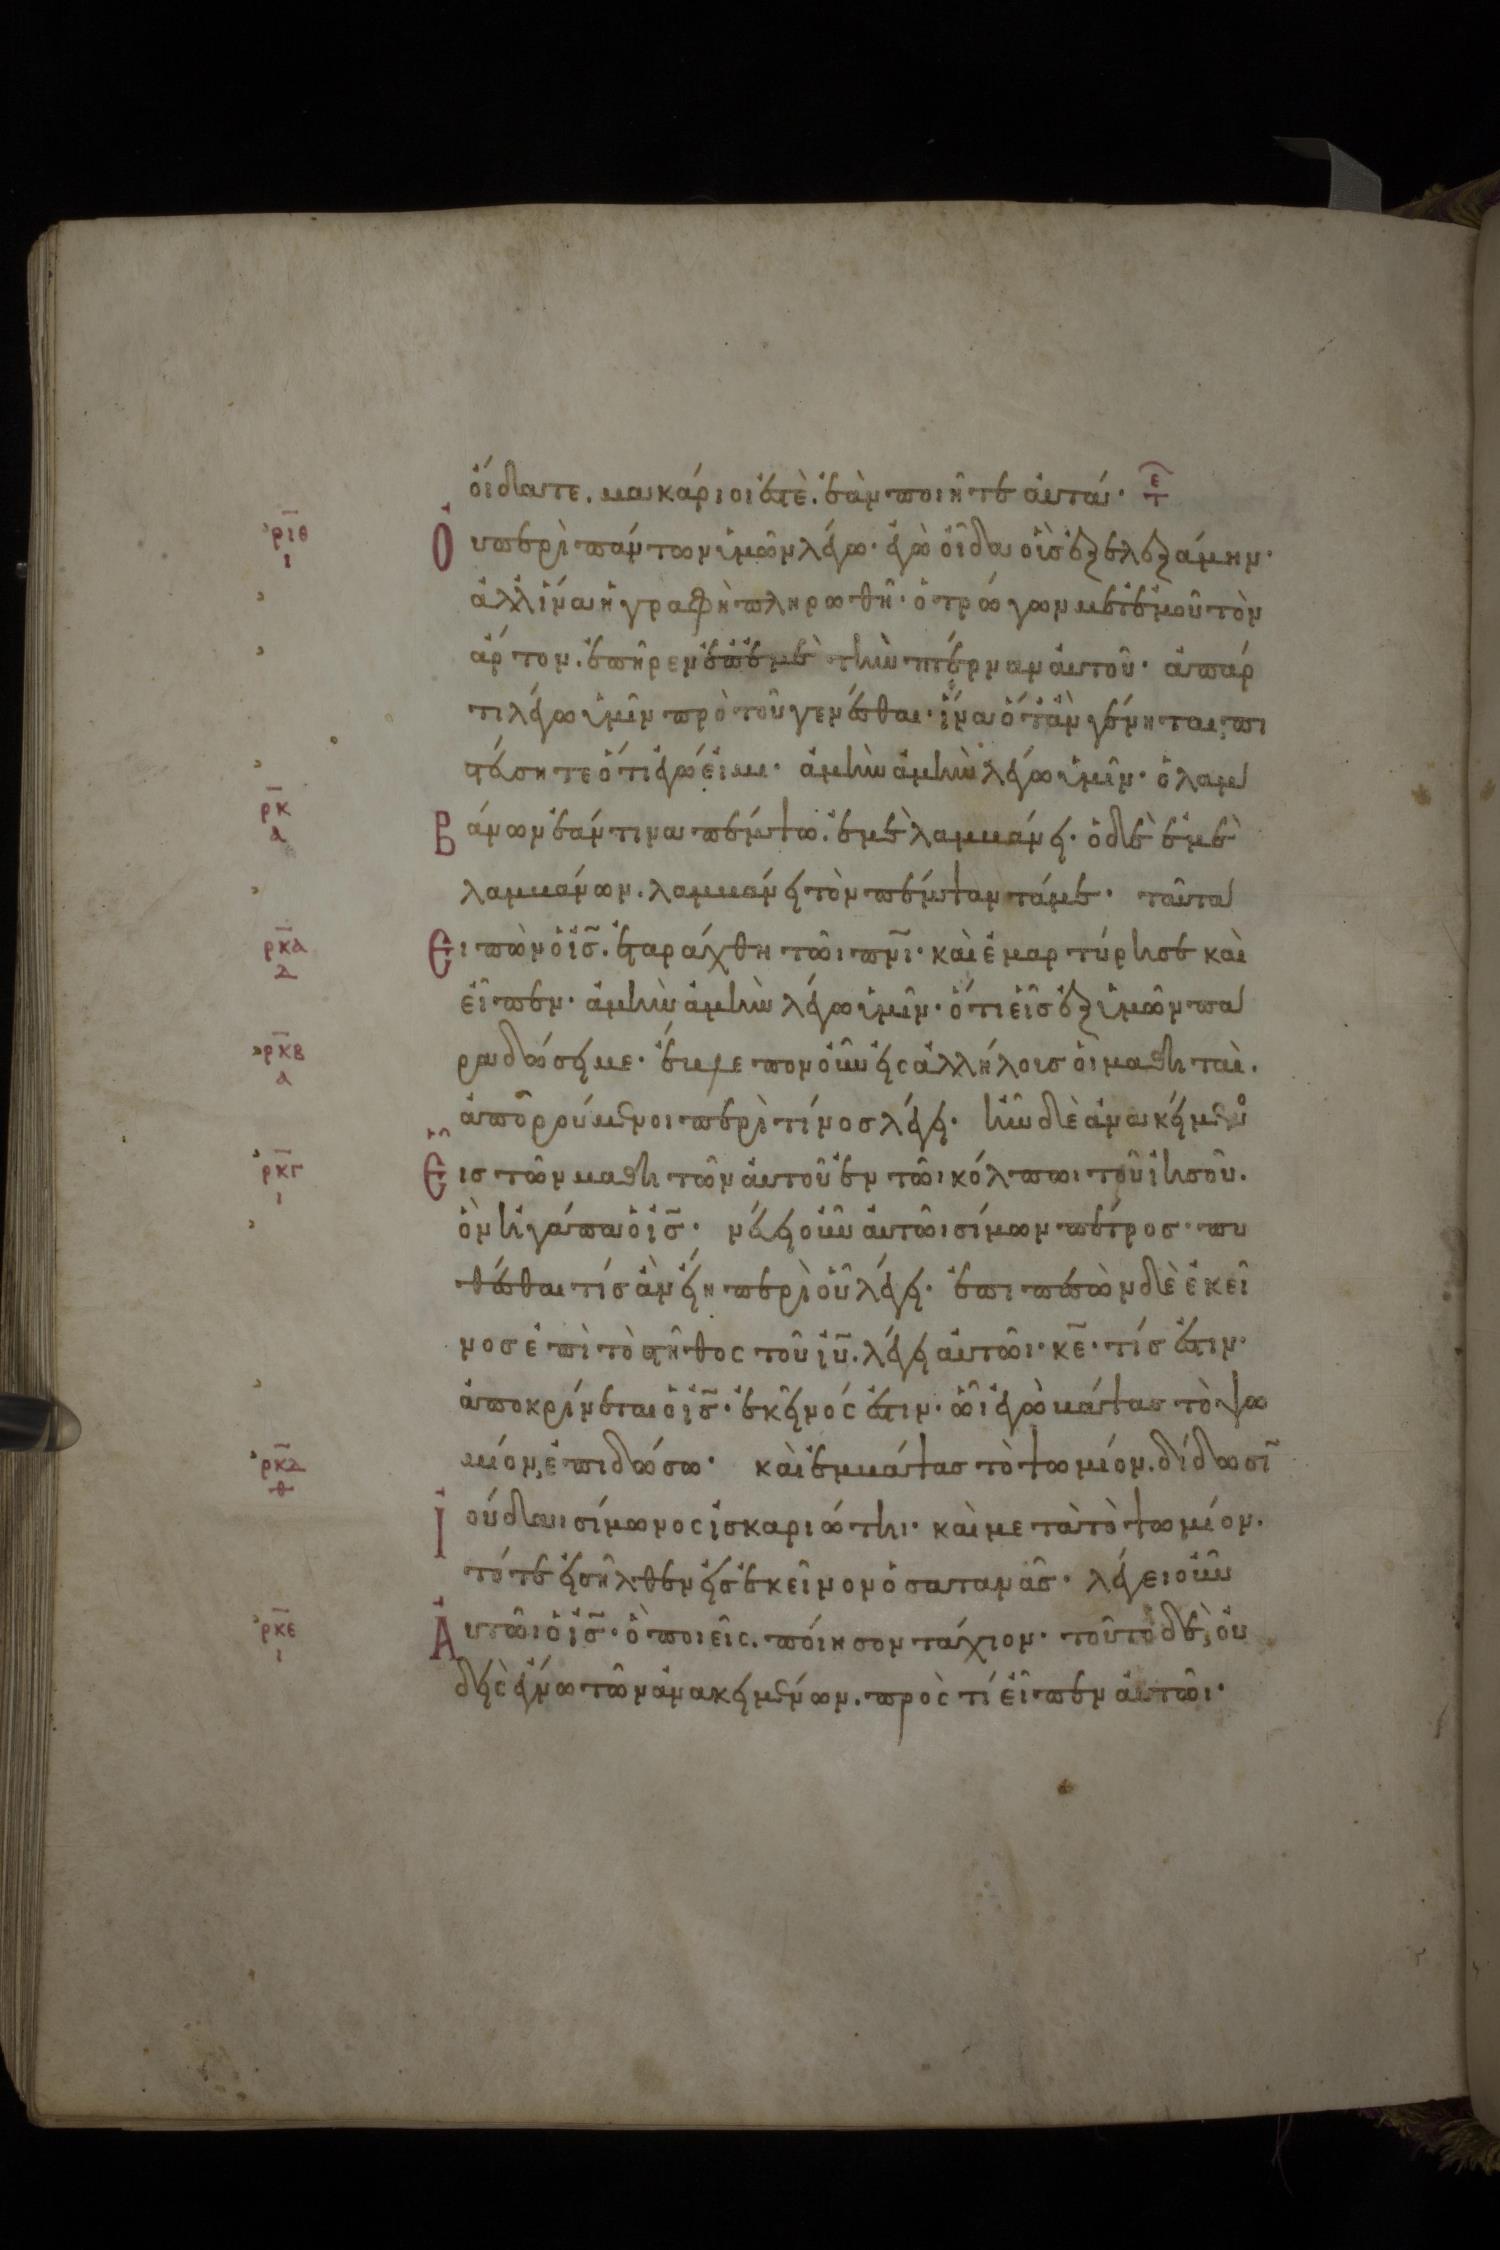 οἴδατε. μακάριοί ἐστὲ. ἐὰν ποιῆτε αὐτά· ͞ετ
ριθ Οὐ περὶ πάντων ὑμῶν λέγω· ἐγὼ οἶδα οὓς ἐξελεξάμην·
ι
ἀλλ' ἵνα ἡ γραφὴ πληρωθῆ· ὁ τρώγων μετ' ἐμοῦ τὸν
ἄρτον. ἐπῆρεν ἐπ' ἐμὲ τὴν πτέρναν αὐτοῦ· ἀπάρ
τι λέγω ὑμῖν πρὸ τοῦ γενέσθαι· ἵνα ὅταν γένηται, πι
στεύσητε ὅτι ἐγώ εἰμι· ἀμὴν ἀμὴν λέγω ὑμῖν· ὁ λαμ
ρκ Βάνων ἐάν τινα πέμψω. ἐμὲ λαμβάνει· ὁ δὲ ἐμὲ
α
λαμβάνων. λαμβάνει τὸν πέμψαντά με· ταῦτα
ρκα Εἰπὼν ὁ ι̅ς̅. ἐταράχθη τῶι πν̅ι· καὶ ἐμαρτύρησε καὶ
δ
εἶπεν· ἀμὴν ἀμὴν λέγω ὑμῖν· ὅτι εἷς ἐξ ὑμῶν πα
ρκβ ραδώσει με· ἔβλεπον οὖν εἰς ἀλλήλους οἱ μαθηταὶ.
α
ἀπορούμενοι περὶ τίνος λέγει· ἦν δὲ ἀνακείμενος
ρκγ Εἷς τῶν μαθητῶν αὐτοῦ ἐν τῶι κόλπωι τοῦ ἰησοῦ.
ι
ὃν ἠγάπα ὁ ι̅ς̅· νεύει οὖν αὐτῶι σίμων πέτρος· πυ
θέσθαι τίς ἂν εἴη περὶ οὗ λέγει· ἐπιπεσὼν δὲ ἐκεῖ
νος ἐπὶ τὸ στῆθος τοῦ ι̅υ̅. λέγει αὐτῶι· κ̅ε̅· τίς ἐστιν·
ἀποκρίνεται ὁ ι̅ς̅· ἐκεῖνός ἐστιν· ὧι ἐγὼ βάψας τὸ ψω
ρκδ μίον, ἐπιδώσω· καὶ ἐμβάψας τὸ ψωμίον. δίδωσι
θ
Ἰούδαι σίμωνος ἰσκαριώτηι· καὶ μετὰ τὸ ψωμίον.
τότε εἰσῆλθεν εἰς ἐκεῖνον ὁ σατανᾶς· λέγει οὖν
ρκε Αὐτῶι ὁ ι̅ς̅· ὃ ποιεῖς. ποίησον τάχιον· τοῦτο δὲ, οὐ
ι
δεὶς ἔγνω τῶν ἀνακειμένων. πρὸς τί εἶπεν αὐτῶι·